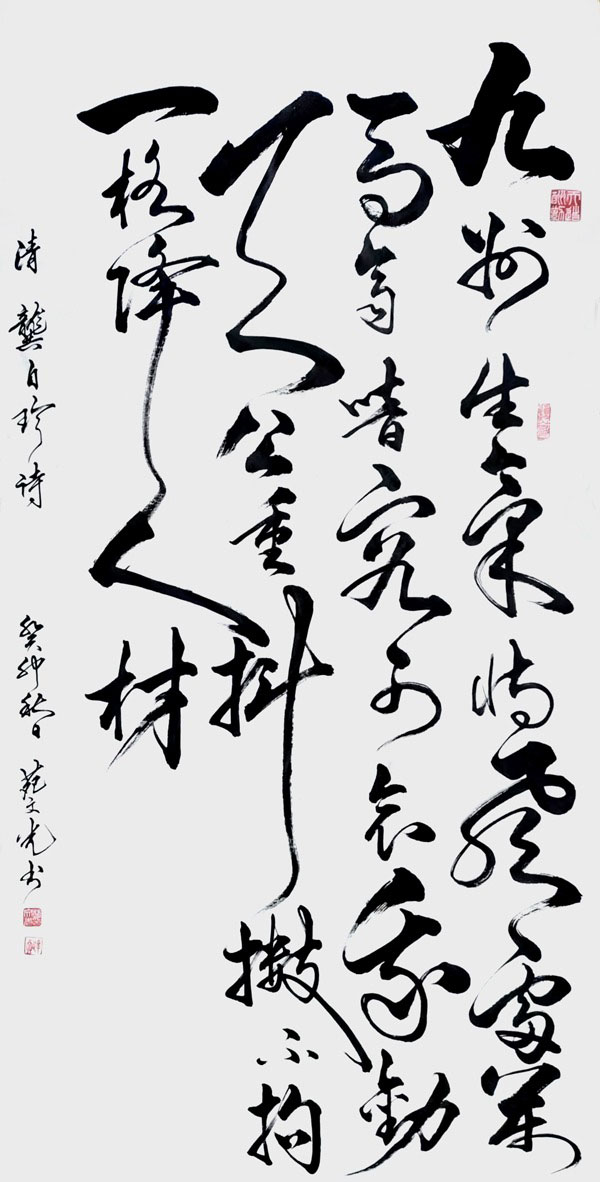 九州生氣恃風雷萬
馬齊喑究可哀我勸
天公重抖擻不拘
一格降人材
清 龔自珍詩 癸卯秋日 苑文光书